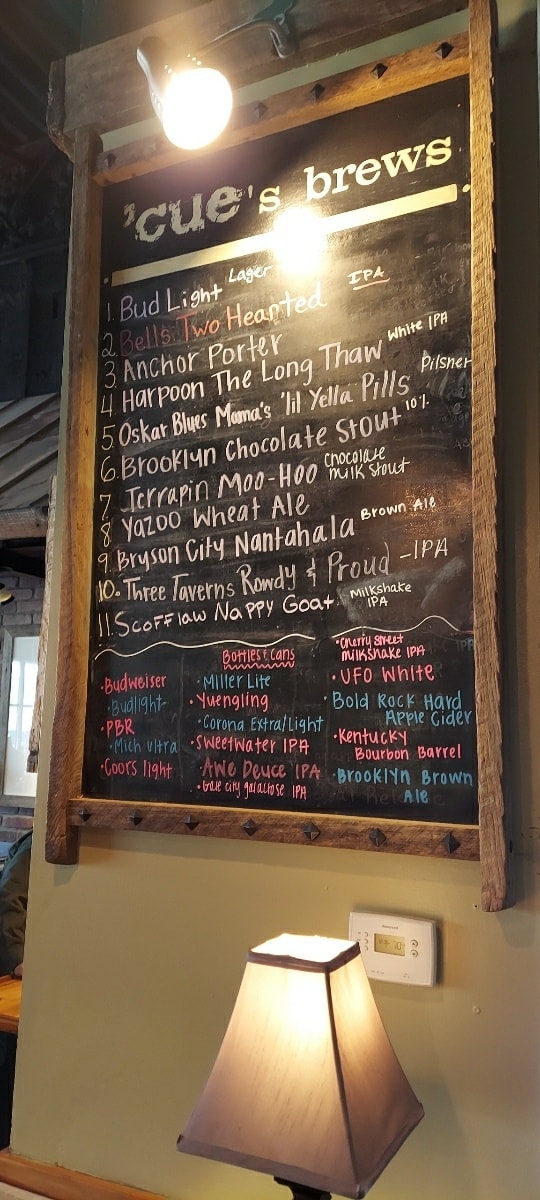 'cue's brews
1. Bud Light Lager
2. Bells Two Hearted IPA
3. Anchor Porter
4. Harpoon The Long Thaw White IPA
5. Oskar Blues Mama's 'lil Yella Pills Pilsner
6. Brooklyn Chocolate Stout 10%
7. Terrapin Moo-Hoo Chocolate Milk Stout
8. Yazoo Wheat Ale
9. Bryson City Nantahala Brown Ale
10. Three Taverns Rowdy & Proud -IPA
11. Scofflaw Nappy Goat Milkshake IPA
Bottles & Cans
•Budweiser
•Budlight
•PBR
•Mich Ultra
•Coors light
•Miller Lite
•Yuengling
•Corona Extra/Light
•Sweetwater IPA
•Awe Deuce IPA
•Gate City galactose IPA
•Cherry Street
Milkshake IPA
•UFO White
•Bold Rock Hard
Apple Cider
•Kentucky
Bourbon Barrel
•Brooklyn Brown
Ale
Honeywell
70